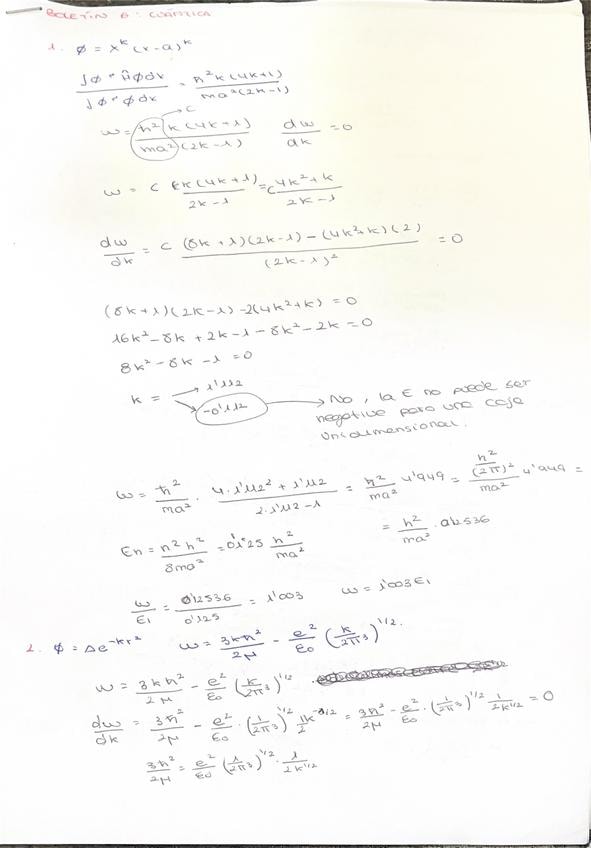 BOLETÍN 6: CUÁNTICA
1. ϕ = x^k (x-a)^k
∫ϕ* Ĥ ϕ dx / ∫ϕ* ϕ dx = ħ² k (4k+1) / ma² (2k-1)
c
w = ħ² k (4k+1) / ma² (2k-1) dw/dk = 0
w = c k(4k+1) / 2k-1 = c 4k²+k / 2k-1
dw/dk = c (8k+1)(2k-1) - (4k²+k)(2) / (2k-1)² = 0
(8k+1)(2k-1) - 2(4k²+k) = 0
16k² - 8k + 2k - 1 - 8k² - 2k = 0
8k² - 8k - 1 = 0
k = → 1'112
→ -0'112 → No, la E no puede ser
negativa para una caja
unidimensional.
w = ħ²/ma² · 4·1'112² + 1'112 / 2·1'112 - 1 = ħ²/ma² 4'949 = h²/(2π)² / ma² 4'949 =
= h²/ma² · 0'12536
En = n² h² / 8ma² = 0'125 h²/ma²
w/E1 = 0'12536 / 0'125 = 1'003 w = 1'003 E1
2. ϕ = Δe^-kr² w = 3kħ²/2μ - e²/ε0 (k/2π³)^1/2.
w = 3kħ²/2μ - e²/ε0 (k/2π³)^1/2
dw/dk = 3ħ²/2μ - e²/ε0 · (1/2π³)^1/2 1/2 k^-1/2 = 3ħ²/2μ - e²/ε0 · (1/2π³)^1/2 1/2k^1/2 = 0
3ħ²/2μ = e²/ε0 (1/2π³)^1/2 · 1/2k^1/2